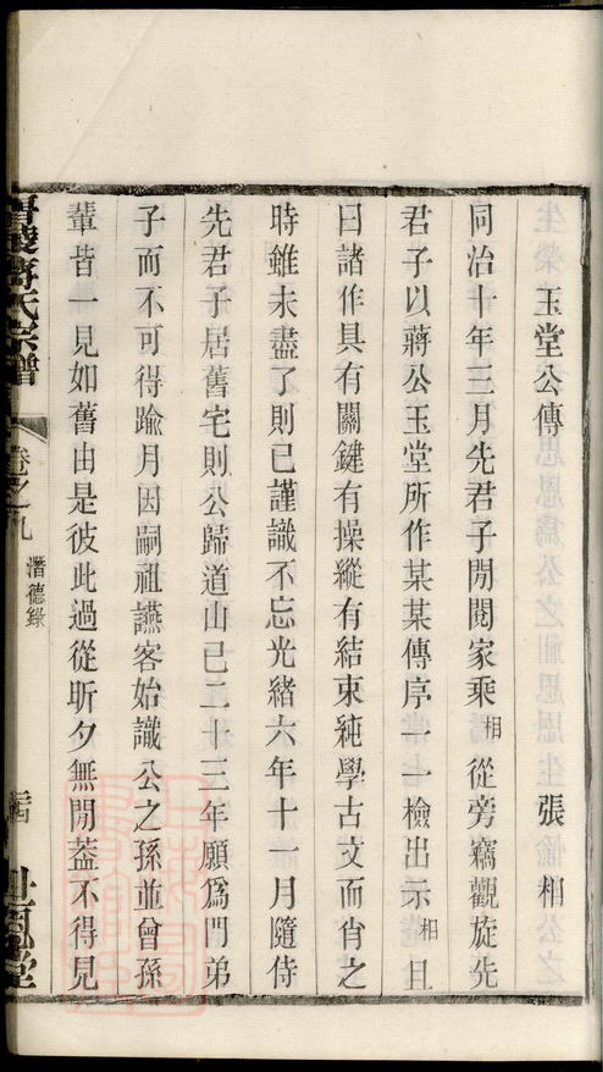 玉堂公傳 張相
同治十年三月先君子閒閱家乘相從旁竊觀旋先
君子以蔣公玉堂所作某某傳序一一檢出示相且
曰諸作具有關鍵有操縱有結束純學古文而肖之
時雖未盡了則已謹識不忘光緒六年十一月隨侍
先君子居舊宅則公歸道山已二十三年願爲門弟
子而不可得踰月因嗣祖讌客始識公之孫並曾孫
輩皆一見如舊由是彼此過從昕夕無閒葢不得見
晉陵蔣氏宗譜 卷之九 潛德錄